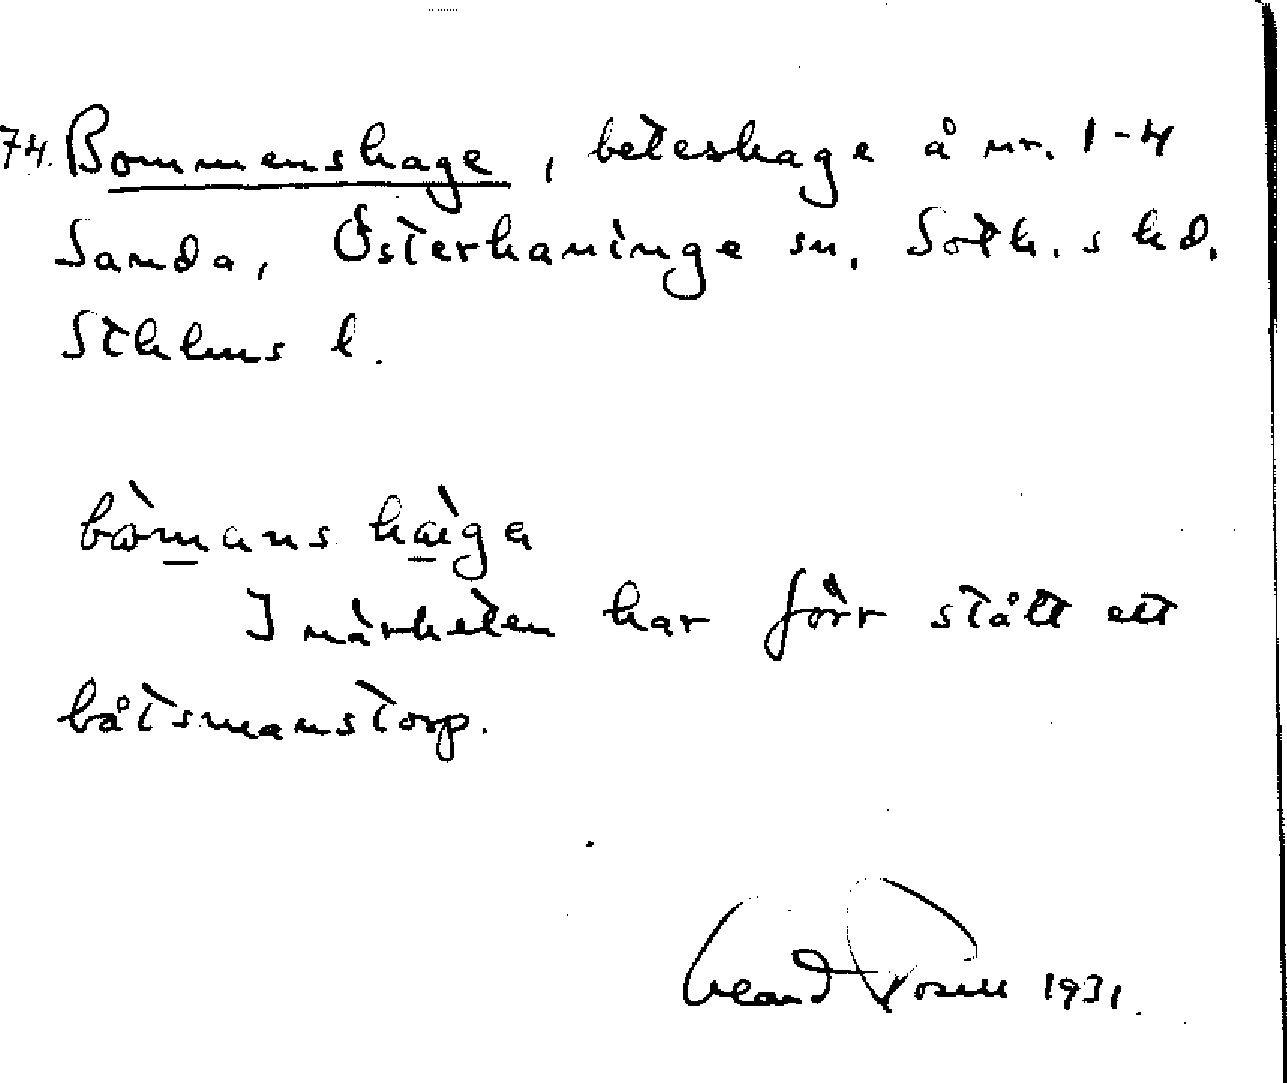 74. Bommenshage, beteshage å nr. 1-4
Sanda, Österhaninge sn. Soth. s hd.
Sthlms l.
bòmans hàga
I närheten har förr stått ett
båtsmanstorp.
1931.